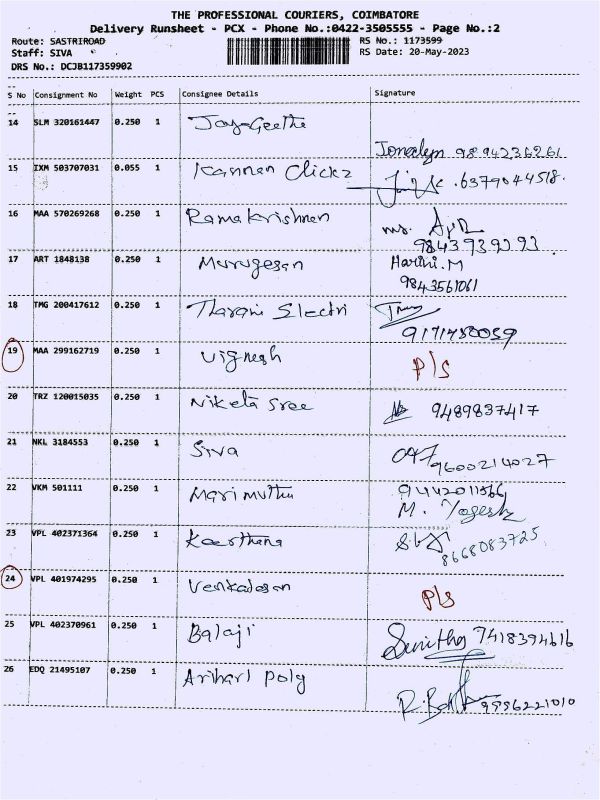 THE PROFESSIONAL COURIERS, COIMBATORE
Delivery Runsheet - PCX - Phone No.:0422-3505555 - Page No.:2
Route: SASTRIROAD RS No.: 1173599
Staff: SIVA RS Date: 20-May-2023
DRS No.: DCJB117359902
S No Consignment No Weight PCS Consignee Details Signature
14 SLM 320161447 0.250 1 JayaGeetha
9894236261
15 IXM 503707031 0.055 1 Kannan Clickz .6379044518.
16 MAA 570269268 0.250 1 Ramakrishnan
9843939393
17 ART 1848138 0.250 1 Murugesan Harini.M
9843561061
18 TMG 200417612 0.250 1 Tharani Electri
9171750059
19 MAA 299162719 0.250 1 Vignesh P/S
20 TRZ 120015035 0.250 1 Niketa Sree 9489837417
21 NKL 3184553 0.250 1 Siva 9600214027
22 VKM 501111 0.250 1 Marimuthu 9442011566
M. Yogesh
23 VPL 402371364 0.250 1 Keerthana 8668083725
24 VPL 401974295 0.250 1 Venkatesan P/S
25 VPL 402370961 0.250 1 Balaji Sunitha 7418394616
26 EDQ 21495107 0.250 1 Arihart Poly